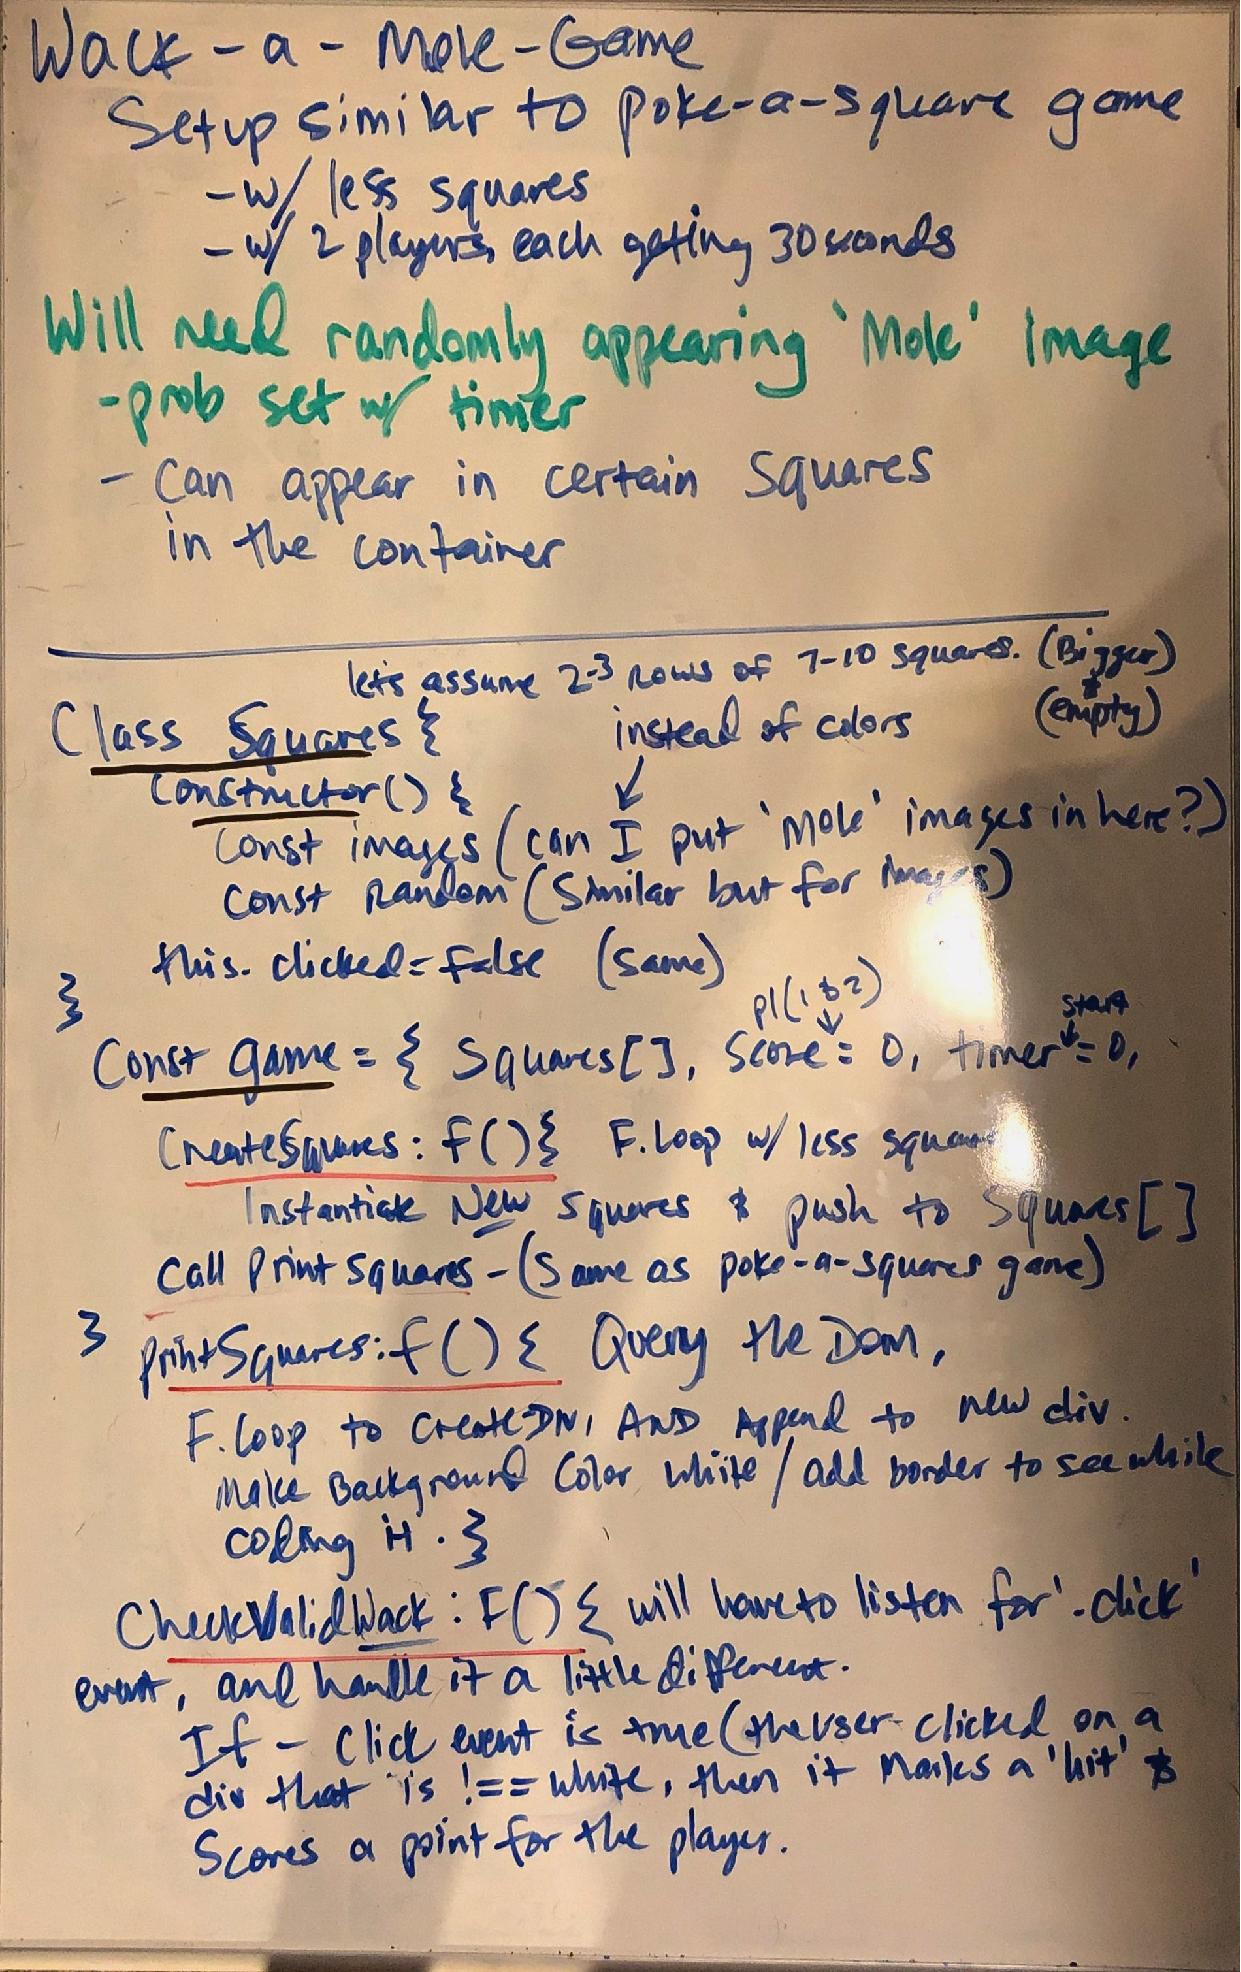 Wack-a-Mole-Game
Setup similar to poke-a-square game
-w/ less squares
-w/ 2 players, each geting 30 seconds
Will need randomly appearing 'Mole' image
-prob set w/ timer
- Can appear in certain squares
in the container
lets assume 2-3 rows of 7-10 squares. (Bigger)
& (empty)
Class Squares {
instead of colors
Constructor() {
Const images (can I put 'Mole' images in here?)
Const Random (Similar but for images)
this.clicked = false (same)
}
pl(1 & 2)
start
Const game = { Squares[], Score = 0, timer = 0,
CreateSquares: f(){ F.loop w/ less squares
Instantiate New squares & push to Squares[]
Call Print squares - (Same as poke-a-squares game)
}
printSquares: f() { Query the Dom,
F.loop to Create Div, AND Append to new div.
Make Background Color white / add border to see while
coding it. }
CheckValidWack: F() { will have to listen for '.click'
event, and handle it a little different.
If - Click event is true (the user clicked on a
div that is !== white, then it Marks a 'hit' &
Scores a point for the player.